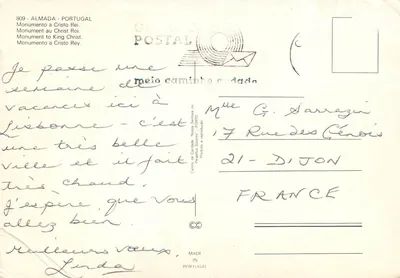 809 - ALMADA - PORTUGAL
Monumento a Cristo Rei.
Monument au Christ Roi.
Monument to King Christ.
Monumento a Cristo Rey.
POSTAL
meio caminho andado
Je passe une
semaine de
vacances ici à
Lisbonne - c'est
une très belle
ville et il fait
très chaud.
J'espère que vous
allez bien.
Meilleurs vœux,
Linda
Mlle G. Sarrazin
17 Rue des Génois
21 - DIJON
FRANCE
MADE
IN
PORTUGAL